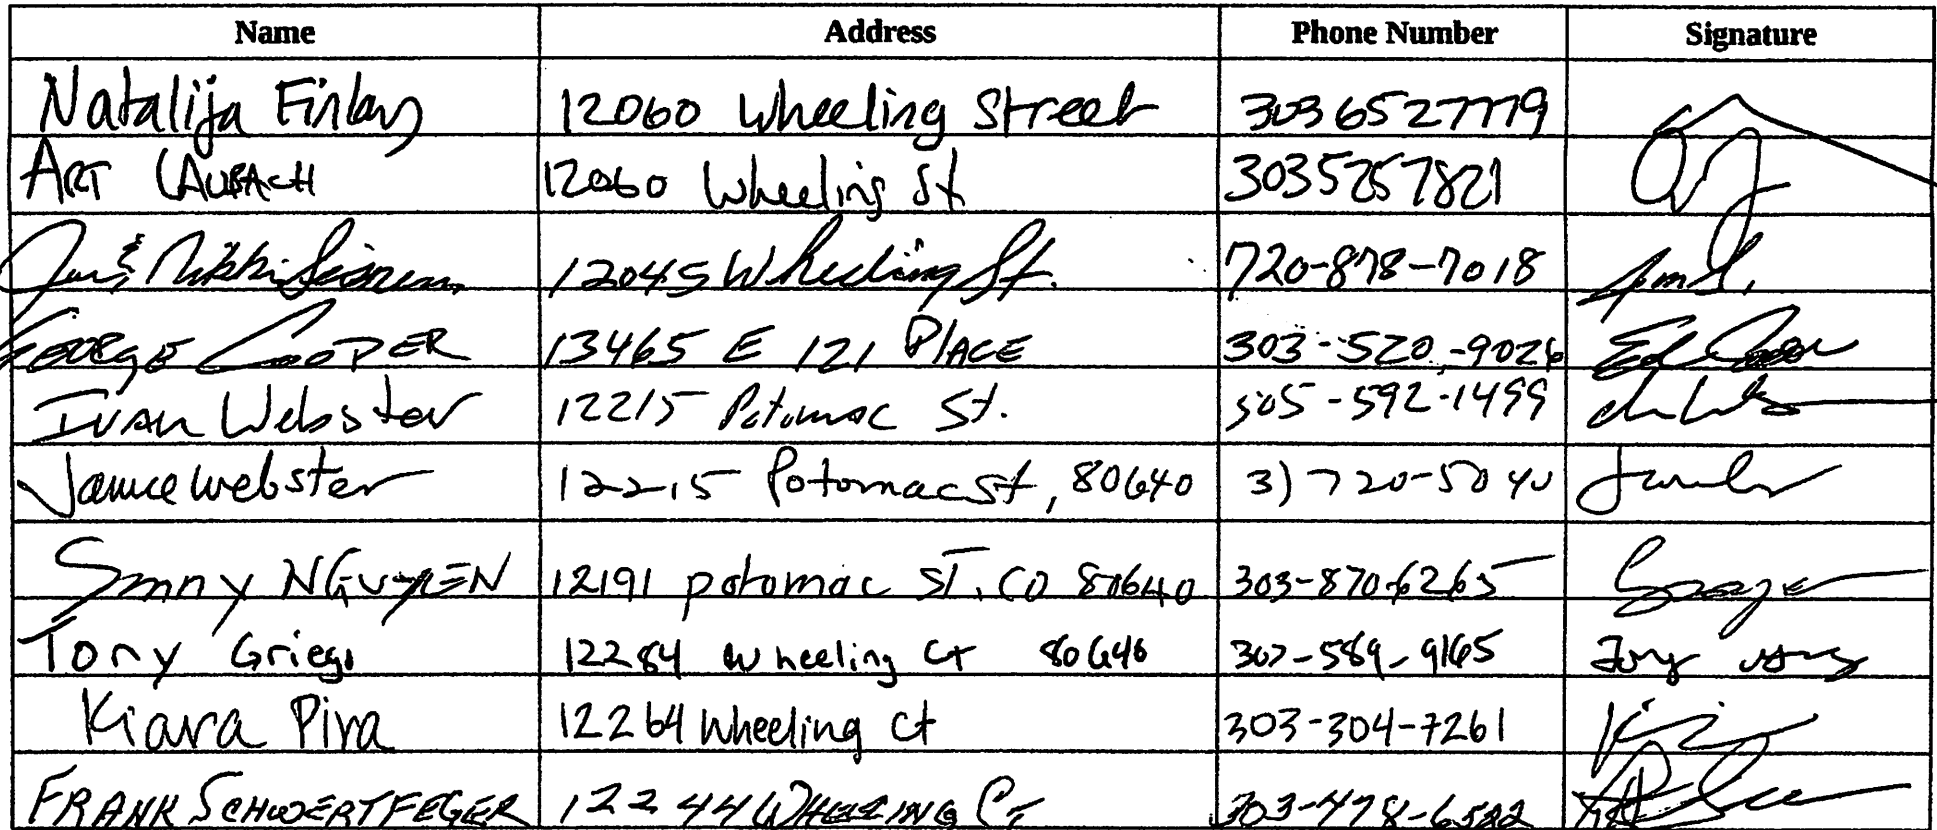 Name Address Phone Number Signature
Natalija Finlay 12060 Wheeling Street 3036527779
ART LAUBACH 12060 Wheeling St 3035257821
& Nikki 12045 Wheeling St. 720-878-7018
GEORGE COOPER 13465 E 121 PLACE 303-520-9026
IVAN Webster 12215 Potomac St. 505-592-1499
Janice Webster 12215 Potomac St, 80640 3) 720-5040
NGUYEN 12191 potomac ST. CO 80640 303-870-6265
Tony Griego 12284 Wheeling Ct 80640 303-589-9165
Kiara Piva 12264 Wheeling Ct 303-304-7261
FRANK SCHWERTFEGER 12244 WHEELING CT 303-478-6522